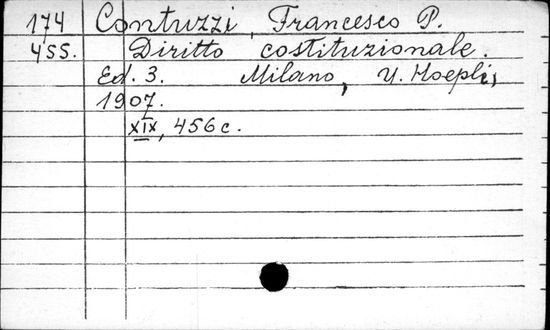 174 Contuzzi, Francesco P.
455. Diritto costituzionale.
Ed. 3. Milano, U. Hoepli,
1907.
XIX, 456 c.